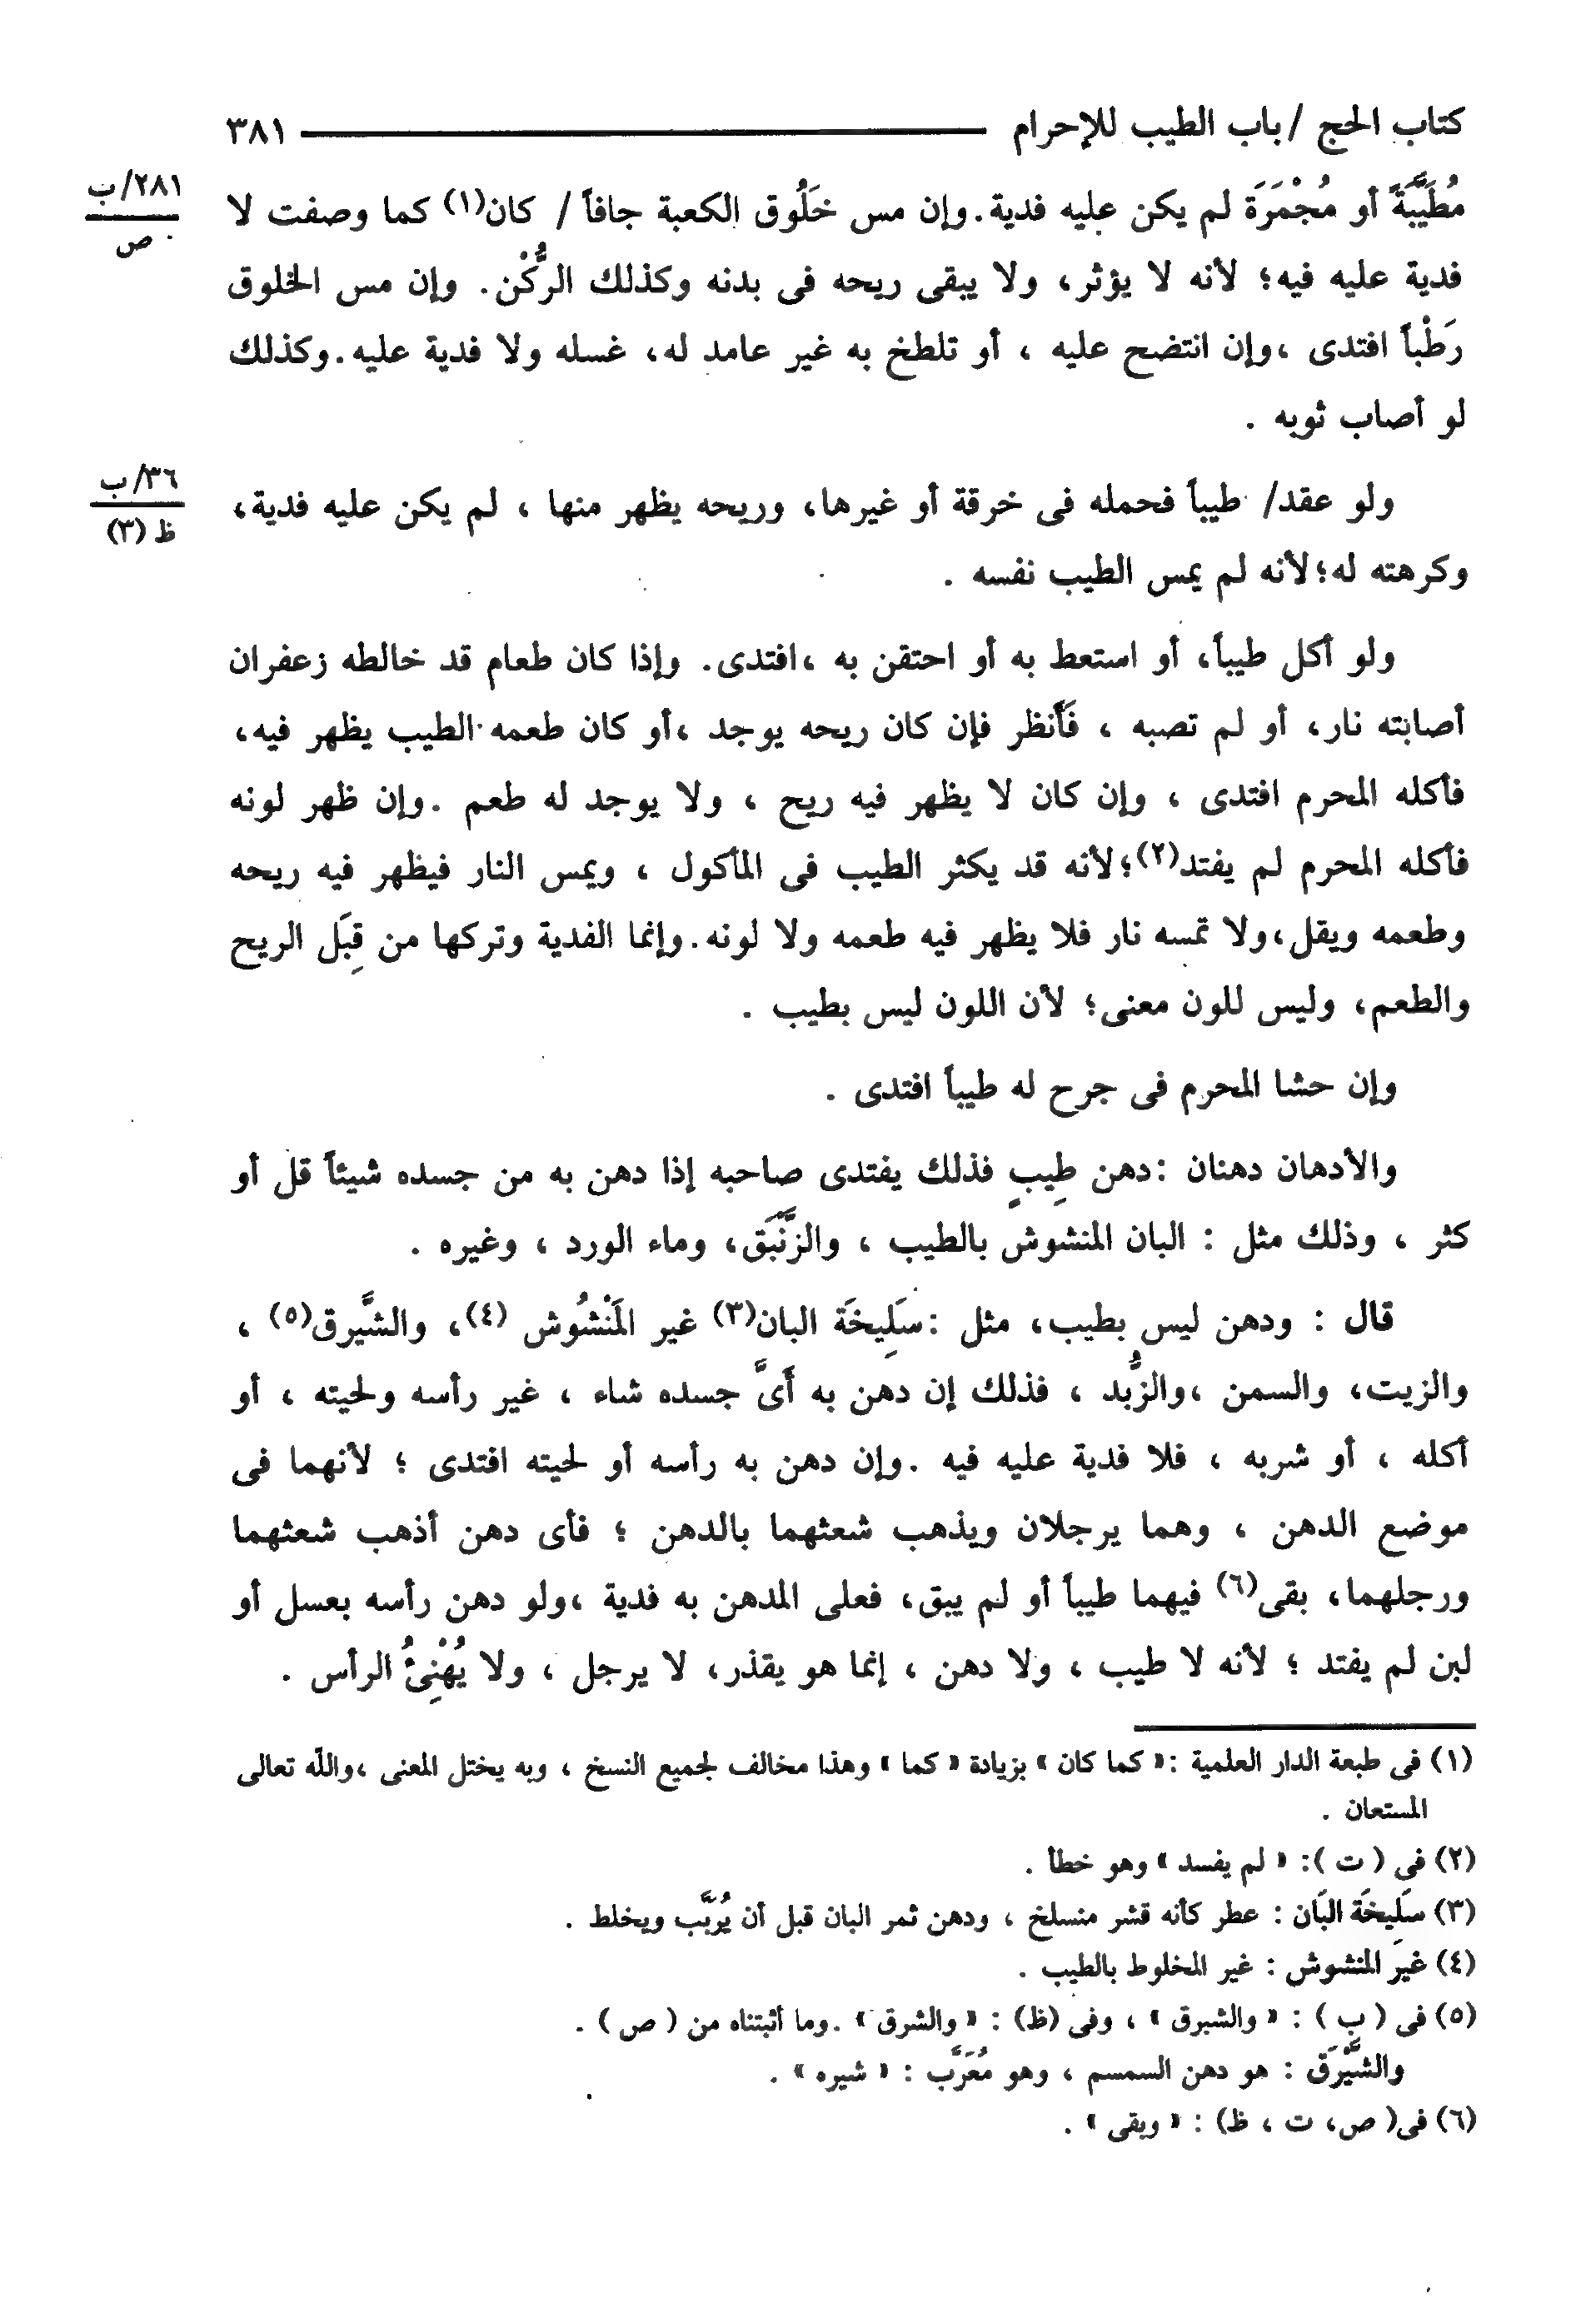 كتاب الحج / باب الطيب للإحرام ٣٨١
٢٨١/ب
ص
مُطَيَّبَةً أو مُجْمَرَةَ لم يكن عليه فدية. وإن مس خَلُوق الكعبة جافاً / كان(١) كما وصفت لا
فدية عليه فيه؛ لأنه لا يؤثر، ولا يبقى ريحه فى بدنه وكذلك الرُّكْن. وإن مس الخلوق
رَطْباً افتدى ،وإن انتضح عليه ، أو تلطخ به غير عامد له، غسله ولا فدية عليه.وكذلك
لو أصاب ثوبه .
٣٦/ب
ظ (٣)
ولو عقد/ طيباً فحمله فى خرقة أو غيرها، وريحه يظهر منها ، لم يكن عليه فدية،
وكرهته له؛لأنه لم يمس الطيب نفسه .
ولو أكل طيباً، أو استعط به أو احتقن به ،افتدى. وإذا كان طعام قد خالطه زعفران
أصابته نار، أو لم تصبه ، فَأَنظر فإن كان ريحه يوجد ،أو كان طعمه الطيب يظهر فيه،
فأكله المحرم افتدى ، وإن كان لا يظهر فيه ريح ، ولا يوجد له طعم .وإن ظهر لونه
فأكله المحرم لم يفتد(٢)؛لأنه قد يكثر الطيب فى المأكول ، ويمس النار فيظهر فيه ريحه
وطعمه ويقل،ولا تمسه نار فلا يظهر فيه طعمه ولا لونه.وإنما الفدية وتركها من قِبَل الريح
والطعم، وليس للون معنى؛ لأن اللون ليس بطيب .
وإن حشا المحرم فى جرح له طيباً افتدى .
والأدهان دهنان :دهن طِيبٍ فذلك يفتدى صاحبه إذا دهن به من جسده شيئاً قل أو
كثر ، وذلك مثل : البان المنشوش بالطيب ، والزَّنْبَق، وماء الورد ، وغيره .
قال : ودهن ليس بطيب، مثل :سَلِيخَة البان(٣) غير المَنْشُوش (٤)، والشَّيرق(٥) ،
والزيت، والسمن ،والزُّبد ، فذلك إن دهن به أَىَّ جسده شاء ، غير رأسه ولحيته ، أو
أكله ، أو شربه ، فلا فدية عليه فيه .وإن دهن به رأسه أو لحيته افتدى ؛ لأنهما فى
موضع الدهن ، وهما يرجلان ويذهب شعثهما بالدهن ؛ فأى دهن أذهب شعثهما
ورجلهما، بقى(٦) فيهما طيباً أو لم يبق، فعلى المدهن به فدية ،ولو دهن رأسه بعسل أو
لبن لم يفتد ؛ لأنه لا طيب ، ولا دهن ، إنما هو يقذر، لا يرجل ، ولا يُهْنِئُ الرأس .
(١) فى طبعة الدار العلمية :« كما كان » بزيادة « كما » وهذا مخالف لجميع النسخ ، وبه يختل المعنى ،والله تعالى
المستعان .
(٢) فى ( ت ): « لم يفسد » وهو خطأ .
(٣) سَلِيخَة البَان : عطر كأنه قشر منسلخ ، ودهن ثمر البان قبل أن يُربَّب ويخلط .
(٤) غير المنشوش : غير المخلوط بالطيب .
(٥) فى ( ب ) : « والشبرق » ، وفى (ظ) : « والشرق » .وما أثبتناه من ( ص ) .
والشَّيْرَق : هو دهن السمسم ، وهو مُعَرَّب : « شيره » .
(٦) فى( ص، ت ، ظ) : « ويقى » .